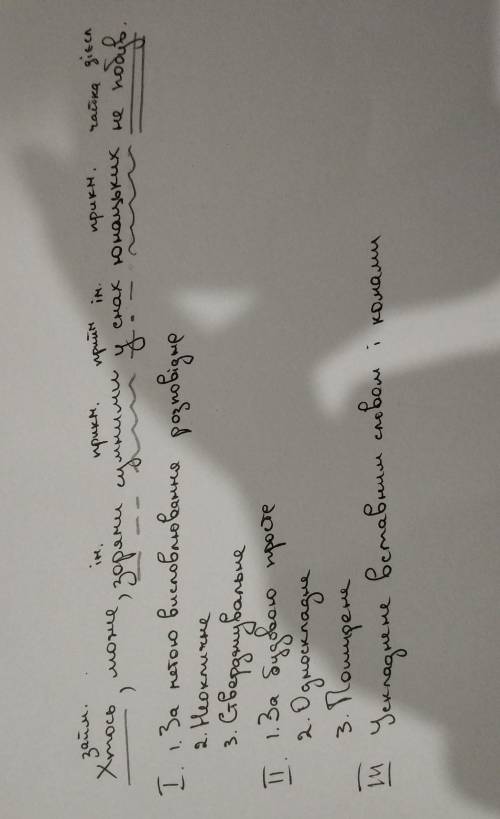 займ. ін. прикм. прийм ін. прикм. чайка дієсл
Хтось, може, зорями сумними у снах юнацьких не побув.
I. 1. За метою висловлювання розповідне
2. Неокличне
3. Стверджувальне
II 1. За будовою просте
2. Односкладне
3. Поширене
III Ускладнене вставним словом і комами